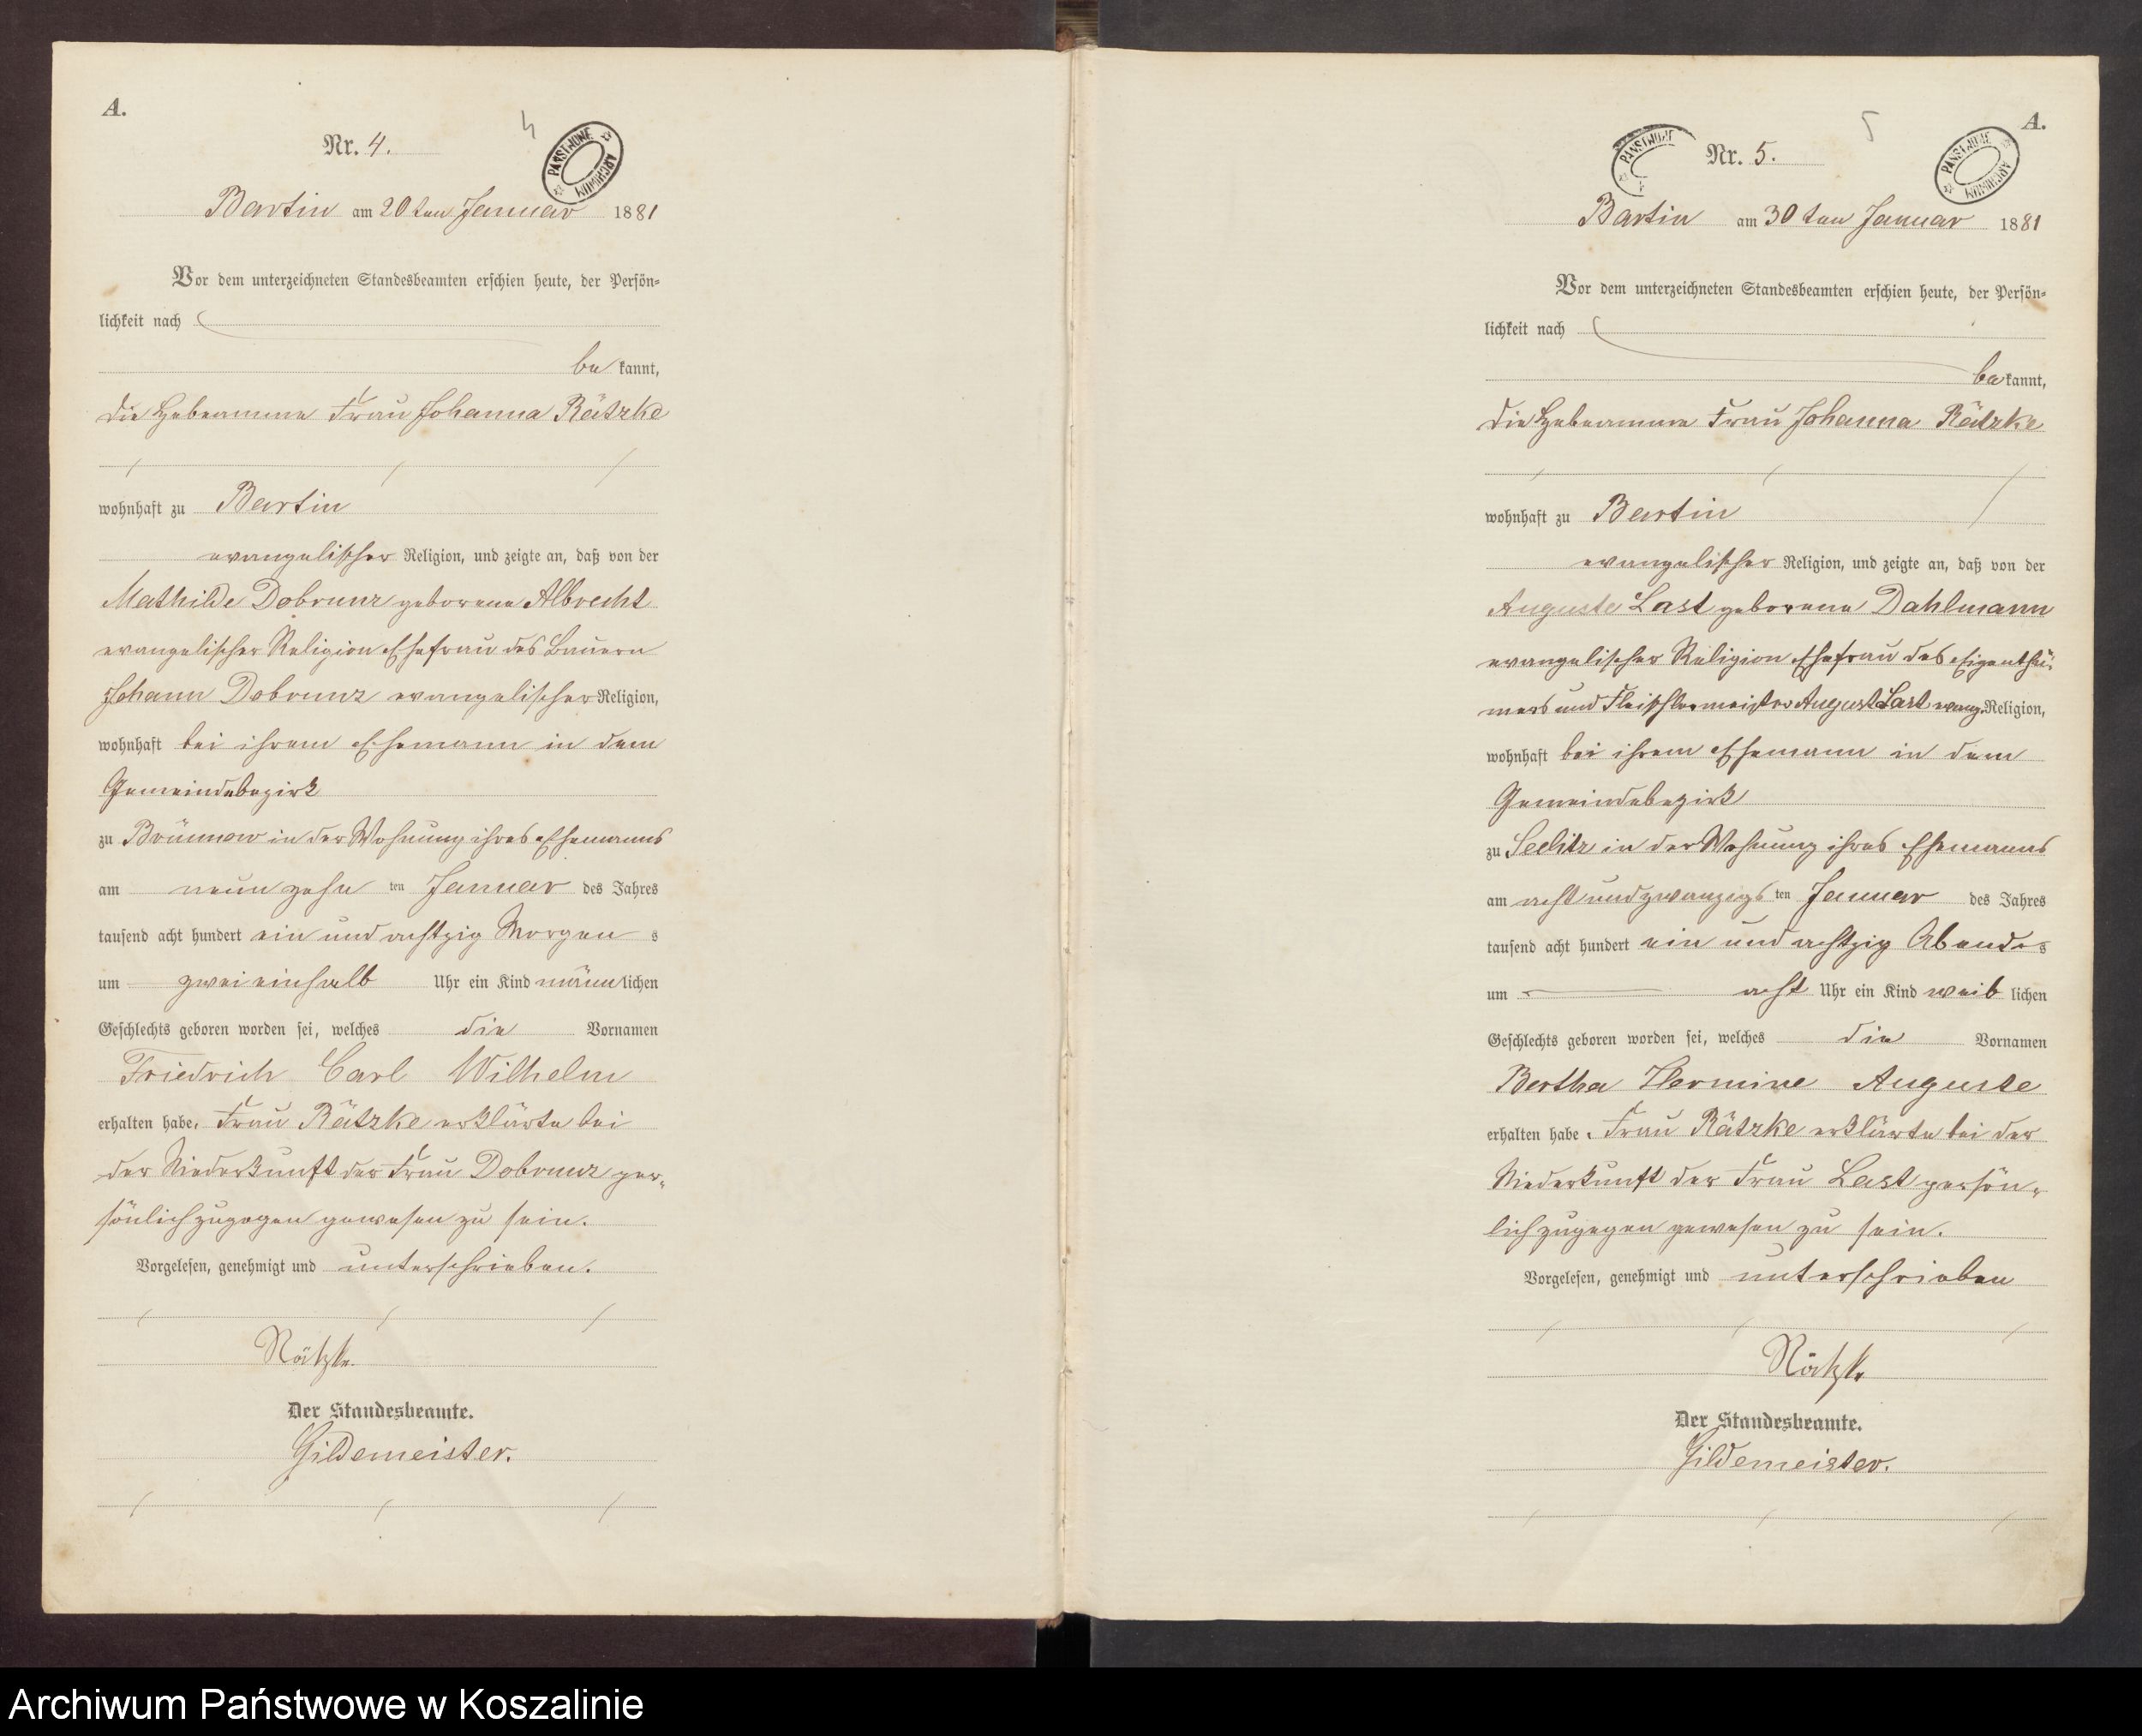 A.
Nr. 4.
4
PAŃSTWOWE ARCHIWUM
Bartin am 20 ten Januar 1881
Vor dem unterzeichneten Standesbeamten erschien heute, der Persön-
lichkeit nach
be kannt,
die Hebeamme Frau Johanna Rätzke
wohnhaft zu Bartin
evangelischer Religion, und zeigte an, daß von der
Mathilde Dobrunz geborene Albrecht
evangelischer Religion Ehefrau des Bauern
Johann Dobrunz evangelischer Religion,
wohnhaft bei ihrem Ehemann in dem
Gemeindebezirk
zu Brünnow in der Wohnung ihres Ehemanns
am neun zehn ten Januar des Jahres
tausend acht hundert ein und achtzig Morgen s
um zwei einhalb Uhr ein Kind männ lichen
Geschlechts geboren worden sei, welches die Vornamen
Friedrich Carl Wilhelm
erhalten habe. Frau Rätzke erklärte bei
der Niederkunft der Frau Dobrunz per-
sönlich zugegen gewesen zu sein.
Vorgelesen, genehmigt und unterschrieben.
Rätzke.
Der Standesbeamte.
Gildemeister.
A.
5
Nr. 5.
PAŃSTWOWE
PAŃSTWOWE ARCHIWUM
Bartin am 30 ten Januar 1881
Vor dem unterzeichneten Standesbeamten erschien heute, der Persön-
lichkeit nach
be kannt,
die Hebeamme Frau Johanna Rätzke
wohnhaft zu Bartin
evangelischer Religion, und zeigte an, daß von der
Auguste Last geborene Dahlmann
evangelischer Religion Ehefrau des Eigenthü-
mers und Fleischermeister August Last evang. Religion,
wohnhaft bei ihrem Ehemann in dem
Gemeindebezirk
zu Seelitz in der Wohnung ihres Ehemanns
am acht und zwanzigs ten Januar des Jahres
tausend acht hundert ein und achtzig Abende s
um acht Uhr ein Kind weib lichen
Geschlechts geboren worden sei, welches die Vornamen
Bertha Hermine Auguste
erhalten habe. Frau Rätzke erklärte bei der
Niederkunft der Frau Last persön-
lich zugegen gewesen zu sein.
Vorgelesen, genehmigt und unterschrieben
Rätzke
Der Standesbeamte.
Gildemeister.
Archiwum Państwowe w Koszalinie